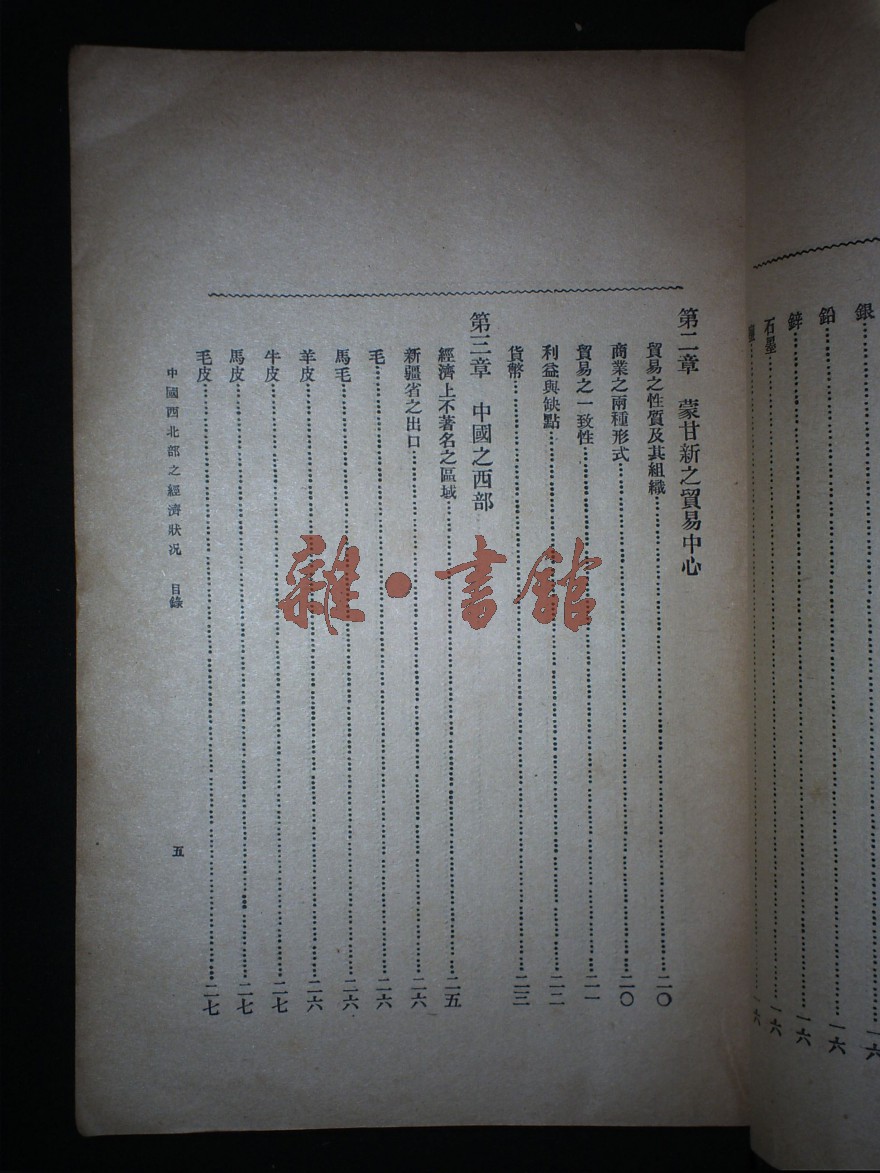 銀……一六
鉛……一六
鋅……一六
石墨……一六
……一六
第二章　蒙甘新之貿易中心
貿易之性質及其組織……二〇
商業之兩種形式……二〇
貿易之一致性……二一
利益與缺點……二二
貨幣……二三
第三章　中國之西部
經濟上不著名之區域……二五
新疆省之出口……二六
毛……二六
馬毛……二六
羊皮……二六
牛皮……二七
馬皮……二七
毛皮……二七
中國西北部之經濟狀况　目錄
五
雜·書館